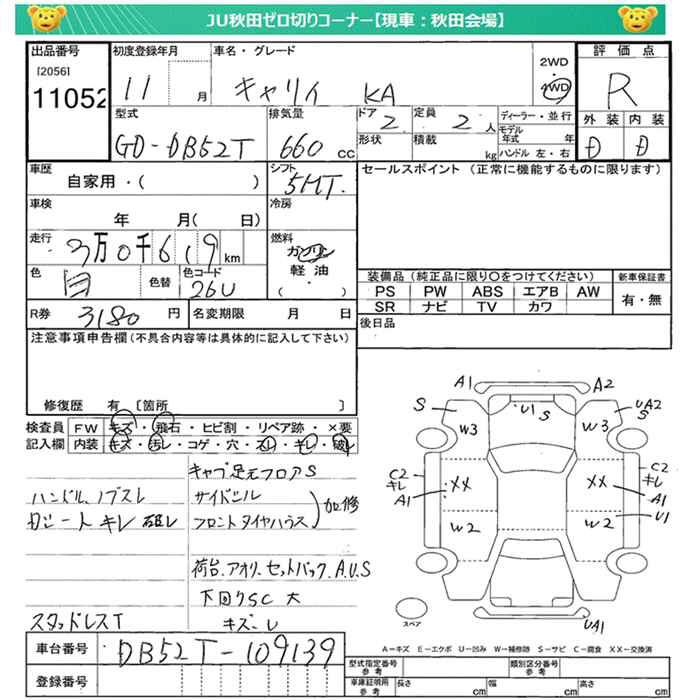 JU秋田ゼロ切りコーナー【現車：秋田会場】
出品番号 初度登録年月 車名・グレード 評価点
[2056] 2WD
11052 11 月 キャリイ KA 4WD R
型式 排気量 ドア 定員 ディーラー・並行 外装 内装
GD-DB52T 660 CC 2 2 人 モデル年式 年 D D
形状 積載 kg ハンドル 左・右
車歴 シフト セールスポイント（正常に機能するものに限ります）
自家用・( ) 5MT.
車検 冷房
年 月( 日)
走行 燃料
3万0千619km ガソリン
軽油
色 色替 色コード ・( )
白 26U
装備品（純正品に限り〇をつけてください） 新車保証書
PS PW ABS エアB AW 有・無
SR ナビ TV カワ
R券 3180 円 名変期限 月 日
後日品
注意事項申告欄（不具合内容等は具体的に記入して下さい）
修復歴 有［箇所 ］
検査員 FW キズ・飛石・ヒビ割・リペア跡・×要
記入欄 内装 キズ・汚レ・コゲ・穴・スレ・キレ・破レ
キャブ足元フロアS
ハンドル、ノブスレ サイドシル
Dシートキレ 破レ フロントタイヤハウス 加修
荷台、アオリ、セットバック、A.U.S
下回りSC 大
スタッドレスT キズ
A1 A2
S U1 S UA2
S
W3 W3
C2 C2
キレ XX XX キレ
A1 A1
W2 W2 U1
スペア UA1
A－キズ E－エクボ U－凹み W－補修跡 S－サビ C－腐食 XX－交換済
車台番号 DB52T-109139
型式指定番号 参考 類別区分番号 参考
登録番号
車庫証明用 参考 長さ cm 幅 cm 高さ cm